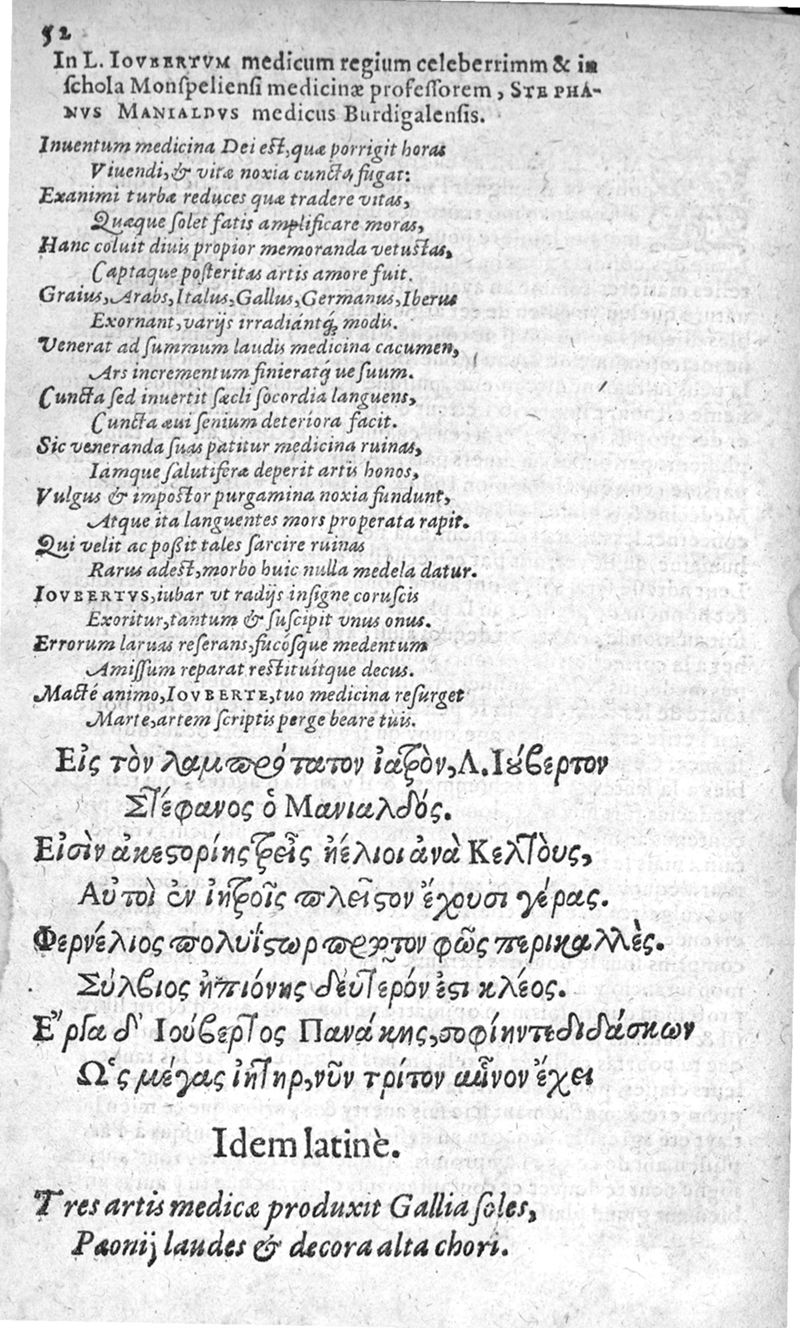 52
In L. IOVBERTVM medicum regium celeberrimm & in
ſchola Monſpelienſi medicinæ profeſſorem, STEPHA-
NVS MANIALDVS medicus Burdigalenſis.
Inuentum medicina Dei eſt, quæ porrigit horas
Viuendi, & vitæ noxia cuncta fugat:
Exanimi turbæ reduces quæ tradere vitas,
Quæque ſolet fatis amplificare moras,
Hanc coluit diuis propior memoranda vetuſtas,
Captaque poſteritas artis amore fuit.
Graius, Arabs, Italus, Gallus, Germanus, Iberus
Exornant, varijs irradiántq; modis.
Venerat ad ſummum laudis medicina cacumen,
Ars incrementum finieratq́ ue ſuum.
Cuncta ſed inuertit ſæcli ſocordia languens,
Cuncta æui ſenium deteriora facit.
Sic veneranda ſuas patitur medicina ruinas,
Iamque ſalutiferæ deperit artis honos,
Vulgus & impoſtor purgamina noxia fundunt,
Atque ita languentes mors properata rapit.
Qui velit ac poßit tales ſarcire ruinas
Rarus adeſt, morbo huic nulla medela datur.
IOVBERTVS, iubar vt radijs inſigne coruſcis
Exoritur, tantum & ſuſcipit vnus onus.
Errorum laruas reſerans, fucóſque medentum
Amiſſum reparat reſtituítque decus.
Macté animo, IOVBERTE, tuo medicina reſurget
Marte, artem ſcriptis perge beare tuis.
Εἰς τὸν λαμπρότατον ἰατρὸν, Λ. Ιούβερτον
Στέφανος ὁ Μανιαλδός.
Εἰσὶν ἀκεστορίης τρεῖς ἠέλιοι ἀνὰ Κελτοὺς,
Αὐτοὶ ἐν ἰητροῖς πλεῖστον ἔχουσι γέρας.
Φερνέλιος πολυΐστωρ πρῶτον φῶς περικαλλὲς.
Σύλβιος ἠπιόνης δεύτερόν ἐστι κλέος.
Ἔργα δ' Ιούβερτος Πανάκης, σοφίην τε διδάσκων
Ὡς μέγας ἰητὴρ, νῦν τρίτον αἶνον ἔχει
Idem latinè.
Tres artis medicæ produxit Gallia ſoles,
Pæonij laudes & decora alta chori.